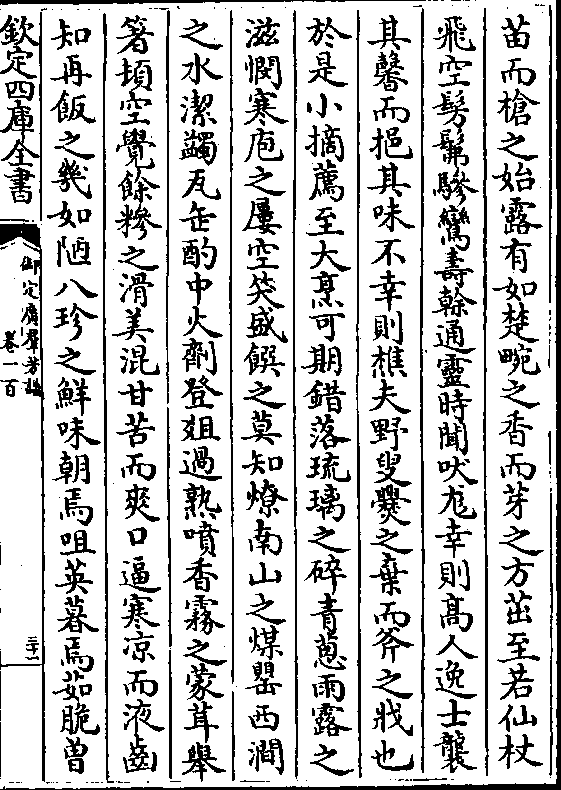 苗而槍之始露有如楚畹之香而芽之方茁至若仙杖
飛空髣髴驂鸞壽榦通靈時聞吠尨幸則髙人逸士襲
其馨而挹其味不幸則樵夫野叟爨之棄而斧之戕也
於是小摘薦至大烹可期錯落琉璃之碎青蔥雨露之
滋憫寒庖之屢空笑盛饌之莫知燎南山之煤罌西澗
之水潔蠲瓦缶酌中火劑登爼過熟噴香霧之蒙茸舉
箸頓空覺餘糝之滑美混甘苦而爽口逼寒凉而液齒
知再飯之幾如陋八珍之鮮味朝焉咀英暮焉茹脆曽
欽定四庫全書
御定廣羣芳譜
卷一百
三十一